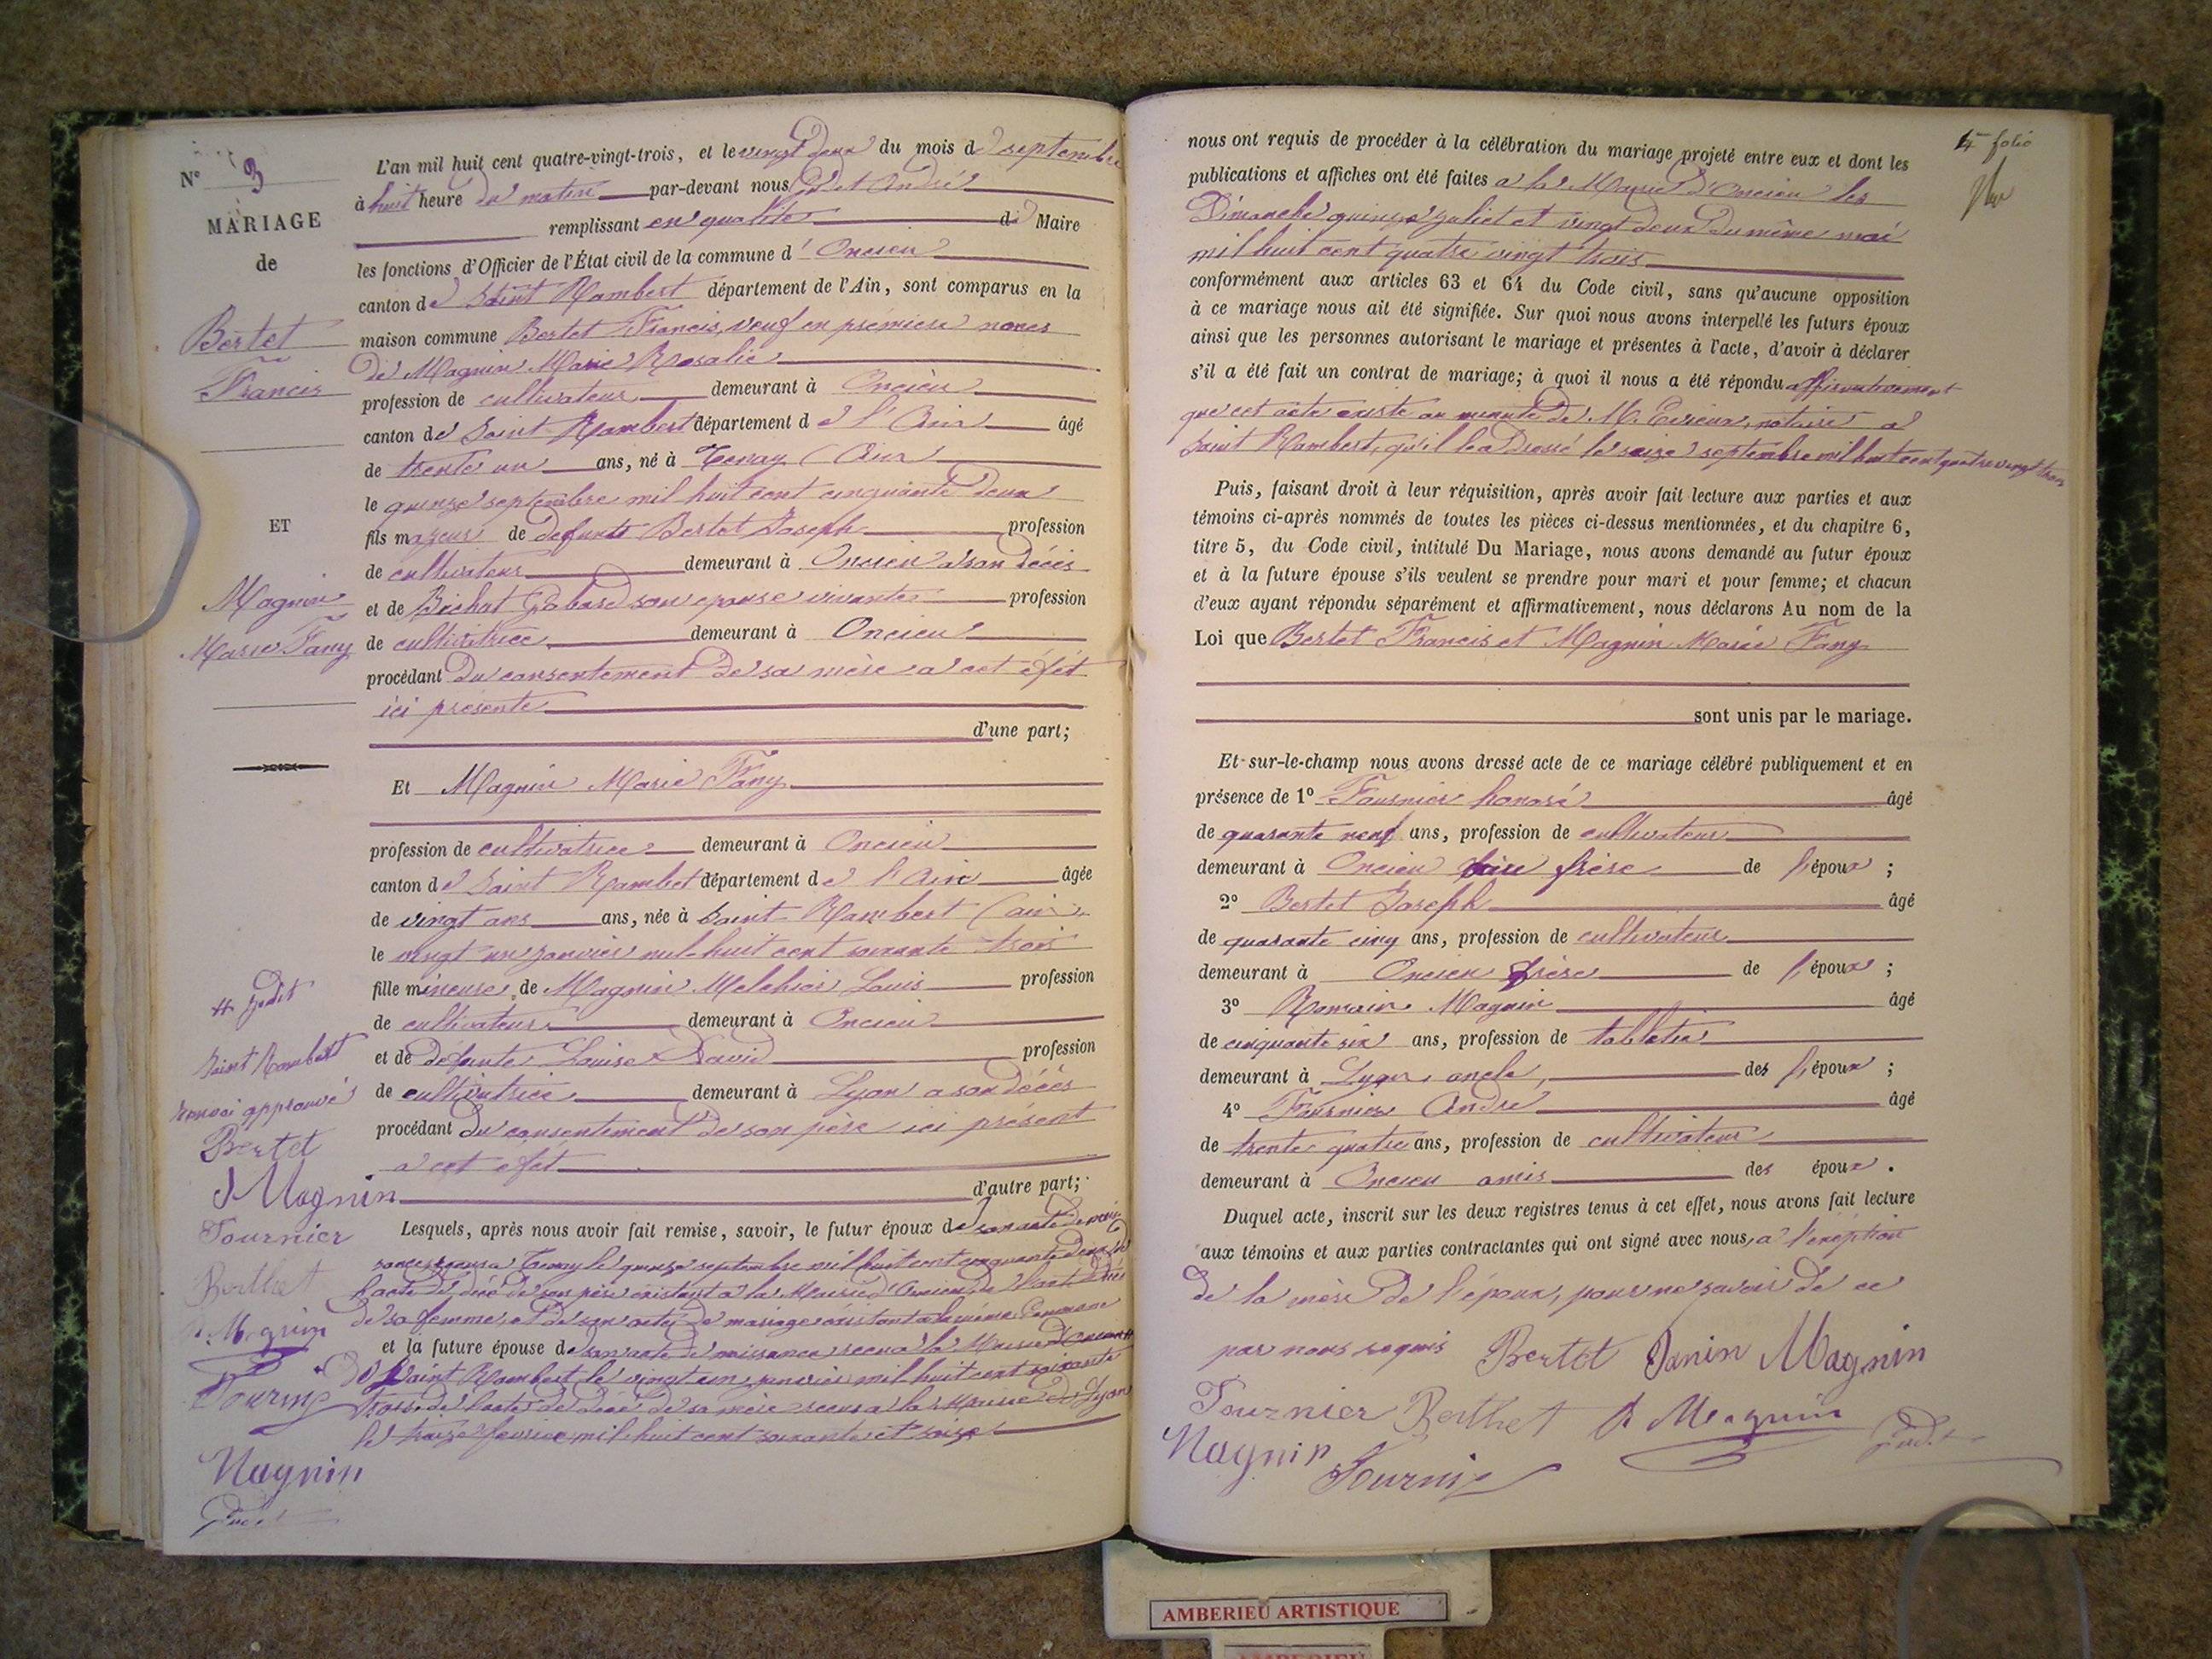 N° 3
MARIAGE
de
Bertet
Francis
ET
Magnin
Marie Fany
Saint Rambert
renvoi approuvé
Bertet
J Magnin
Fournier
Berthet
Magnin
Magnin
L'an mil huit cent quatre-vingt-trois, et le vingt deux du mois de septembre
à huit heure du matin par-devant nous André
remplissant en qualité de Maire
les fonctions d'Officier de l'État civil de la commune d'Oncieu
canton de Saint Rambert département de l'Ain, sont comparus en la
maison commune Bertet Francis, veuf en prémiere noces
de Magnin Marie Rosalie
profession de cultivateur demeurant à Oncieu
canton de Saint Rambert département de l'Ain âgé
de trente un ans, né à Tenay (Ain
le quinze septembre mil huit cent cinquante deux
fils majeur de defunts Bertet Joseph profession
de cultivateur demeurant à Oncieu a son décès
et de Bichat son epouse vivante profession
de cultivatrice demeurant à Oncieu
procédant du consentement de sa mère a cet éfét
ici présente
d'une part;
Et Magnin Marie Fany
profession de cultivatrice demeurant à Oncieu
canton de Saint Rambet département de l'Ain âgée
de vingt ans ans, née à Saint-Rambert (ain
le vingt un janvier mil huit cent soixante trois
fille mineure de Magnin Melchior Louis profession
de cultivateur demeurant à Oncieu
et de défunte Louise David profession
de cultivatrice demeurant à Lyon a son décès
procédant du consentement de son père ici présent
a cet éfet
d'autre part;
Lesquels, après nous avoir fait remise, savoir, le futur époux de son acte de nais
sance recu a Tenay le quinze septembre mil huit cent cinquante deux de
l'acte de décé de son père éxistant a la Mairie d'Oncieu, de l'acte de décé
de sa femme, et de son acte de mariage éxistant a la même Commune
et la future épouse de son acte de naissance recu à la Mairie d'Oncieu
de Saint Rambert le vingt un janvier mil huit cent soixante
trois, de l'acte de décé de sa mère recu a la Mairie de Lyon
le treize fevrier mil huit cent soixante et seize
4e folio
nous ont requis de procéder à la célébration du mariage projeté entre eux et dont les
publications et affiches ont été faites a la Mairie d'Oncieu les
Dimanche quinze juliet et vingt deux du même moi
mil huit cent quatre vingt trois
conformément aux articles 63 et 64 du Code civil, sans qu'aucune opposition
à ce mariage nous ait été signifiée. Sur quoi nous avons interpellé les futurs époux
ainsi que les personnes autorisant le mariage et présentes à l'acte, d'avoir à déclarer
s'il a été fait un contrat de mariage; à quoi il nous a été répondu affirmativement
que cet acte existe au minute de M. notaire a
Saint Rambert, qu'il l'a dressé le seize septembre mil huit cent quatre vingt trois
Puis, faisant droit à leur réquisition, après avoir fait lecture aux parties et aux
témoins ci-après nommés de toutes les pièces ci-dessus mentionnées, et du chapitre 6,
titre 5, du Code civil, intitulé Du Mariage, nous avons demandé au futur époux
et à la future épouse s'ils veulent se prendre pour mari et pour femme; et chacun
d'eux ayant répondu séparément et affirmativement, nous déclarons Au nom de la
Loi que Bertet Francis et Magnin Marie Fany
sont unis par le mariage.
Et sur-le-champ nous avons dressé acte de ce mariage célébré publiquement et en
présence de 1° Fournier honoré âgé
de quarante neuf ans, profession de cultivateur
demeurant à Oncieu frère de l'époux ;
2° Bertet Joseph âgé
de quarante cinq ans, profession de cultivateur
demeurant à Oncieu frère de l'époux ;
3° Romain Magnin âgé
de cinquante six ans, profession de tabletié
demeurant à Lyon, oncle, des l'époux ;
4° Fournier André âgé
de trente quatre ans, profession de cultivateur
demeurant à Oncieu amis des époux.
Duquel acte, inscrit sur les deux registres tenus à cet effet, nous avons fait lecture
aux témoins et aux parties contractantes qui ont signé avec nous, a l'exéption
de la mère de l'époux, pour ne savoir de ce
par nous requis Bertet Janin Magnin
Fournier Berthet Magnin
Magnin Fournier
AMBERIEU ARTISTIQUE
AMBERIEU